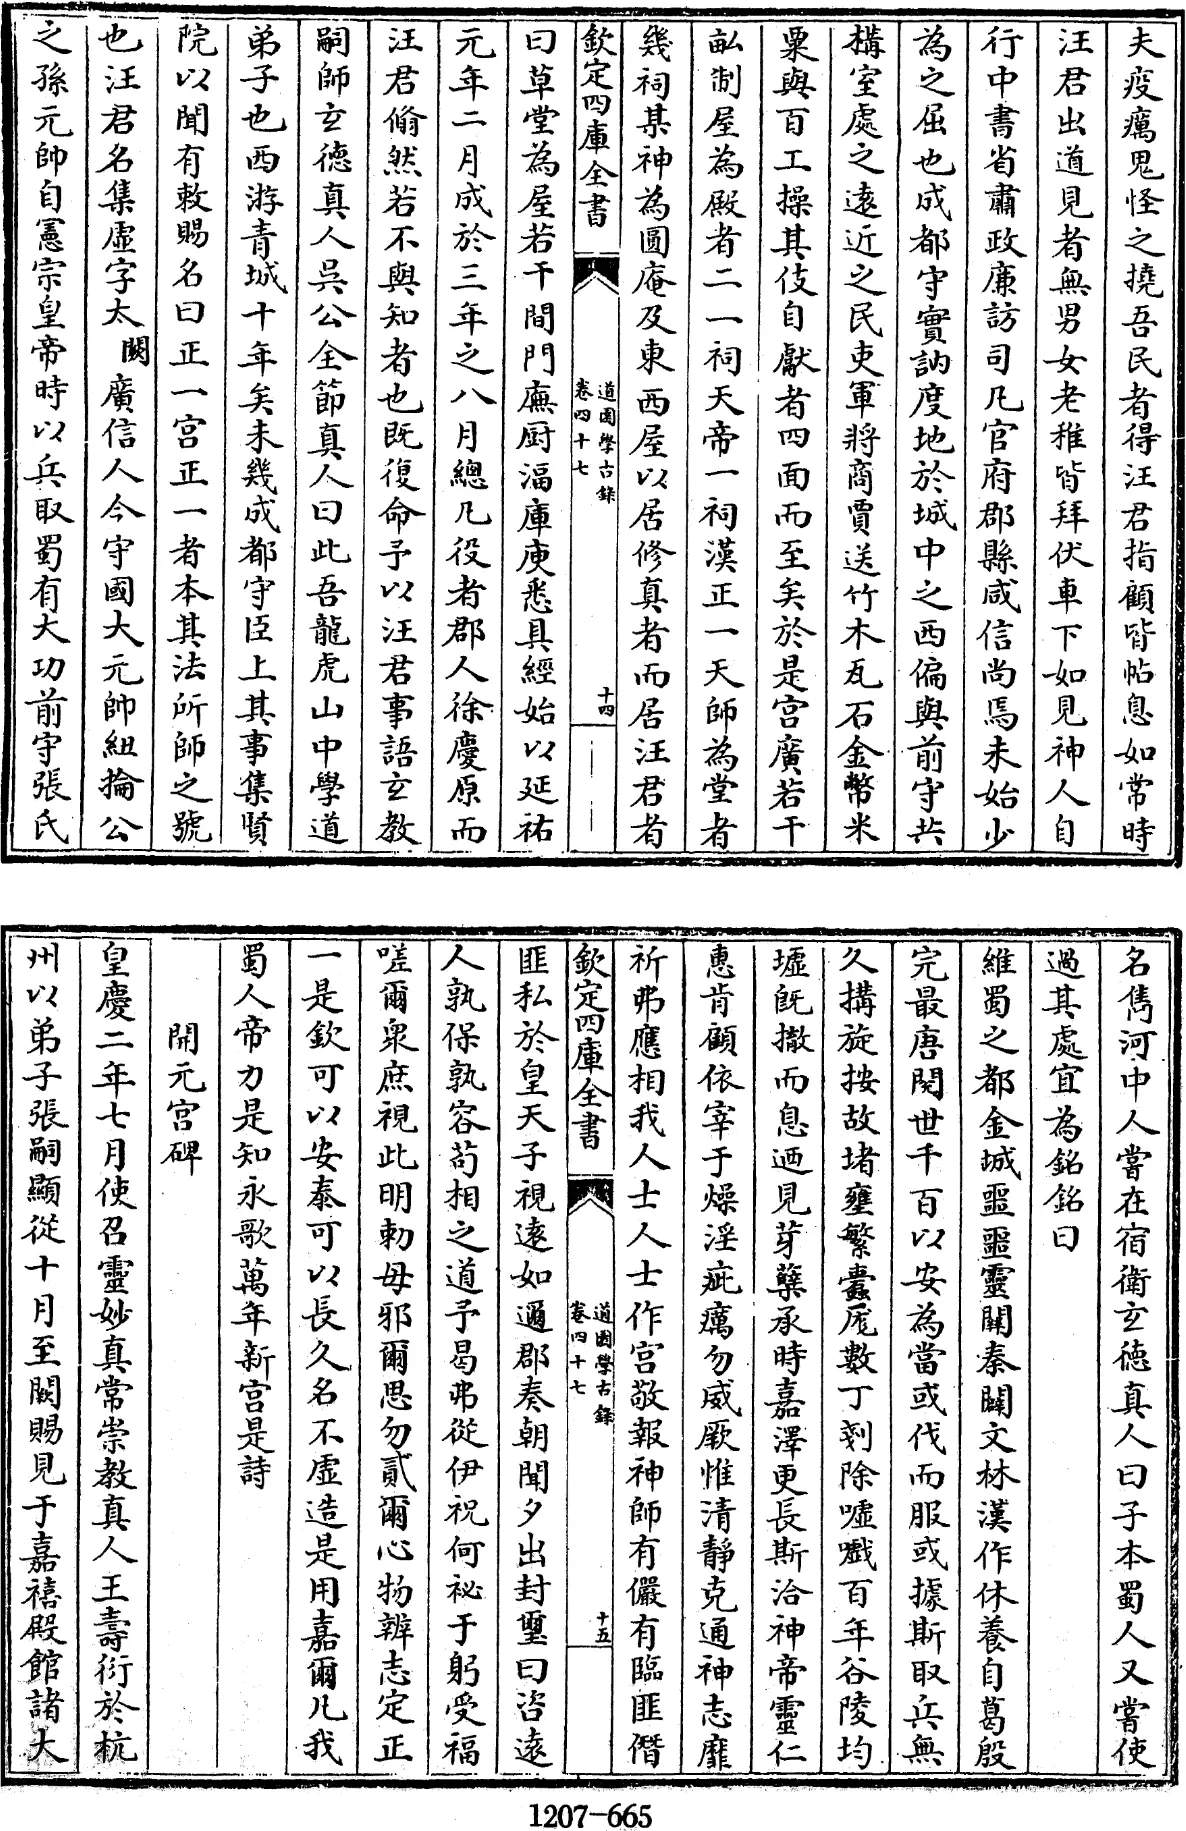 夫疫癘鬼怪之撓吾民者得汪君指顧皆帖息如常時
汪君出道見者無男女老稚皆拜伏車下如見神人自
行中書省肅政廉訪司凡官府郡縣咸信尚焉未始少
為之屈也成都守實訥度地於城中之西偏與前守共
構室處之遠近之民吏軍將商賈送竹木瓦石金幣米
粟與百工操其伎自獻者四面而至矣於是宮廣若干
畝制屋為殿者二一祠天帝一祠漢正一天師為堂者
幾祠某神為圓庵及東西屋以居修真者而居汪君者
欽定四庫全書
道園學古錄
卷四十七
十四
曰草堂為屋若干間門廡厨湢庫庾悉具經始以延祐
元年二月成於三年之八月總凡役者郡人徐慶原而
汪君翛然若不與知者也既復命予以汪君事語玄教
嗣師玄德真人吳公全節真人曰此吾龍虎山中學道
弟子也西游青城十年矣未幾成都守臣上其事集賢
院以聞有敕賜名曰正一宮正一者本其法所師之號
也汪君名集虛字太闕廣信人今守國大元帥紐掄公
之孫元帥自憲宗皇帝時以兵取蜀有大功前守張氏
名雋河中人嘗在宿衛玄德真人曰子本蜀人又嘗使
過其處宜為銘銘曰
維蜀之都金城噩噩靈關秦闢文林漢作休養自葛殷
完最唐閱世千百以安為當或伐而服或據斯取兵無
久搆旋按故堵壅繁蠹厖數丁剗除噓嚱百年谷陵均
墟既撤而息迺見芽蘖承時嘉澤更長斯洽神帝靈仁
惠肯顧依宰于燥淫疵癘勿威厥惟清靜克通神志靡
祈弗應相我人士人士作宮敬報神師有儼有臨匪僭
欽定四庫全書
道園學古錄
卷四十七
十五
匪私於皇天子視遠如邇郡奏朝聞夕出封璽曰咨遠
人孰保孰容苟相之道予曷弗從伊祝何祕于躬受福
嗟爾衆庶視此明勅毋邪爾思勿貳爾心物辨志定正
一是欽可以安泰可以長久名不虛造是用嘉爾凡我
蜀人帝力是知永歌萬年新宮是詩
開元宮碑
皇慶二年七月使召靈妙真常崇教真人王壽衍於杭
州以弟子張嗣顯從十月至闕賜見于嘉禧殿館諸大
1207-665